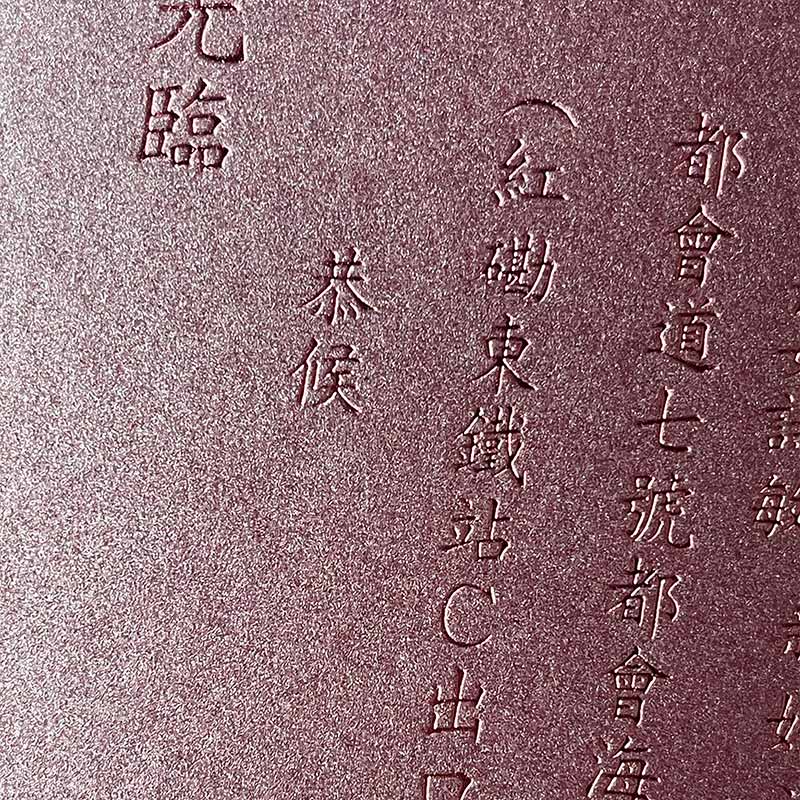 都會道七號都會海
（紅磡東鐵站C出口
恭候
光臨